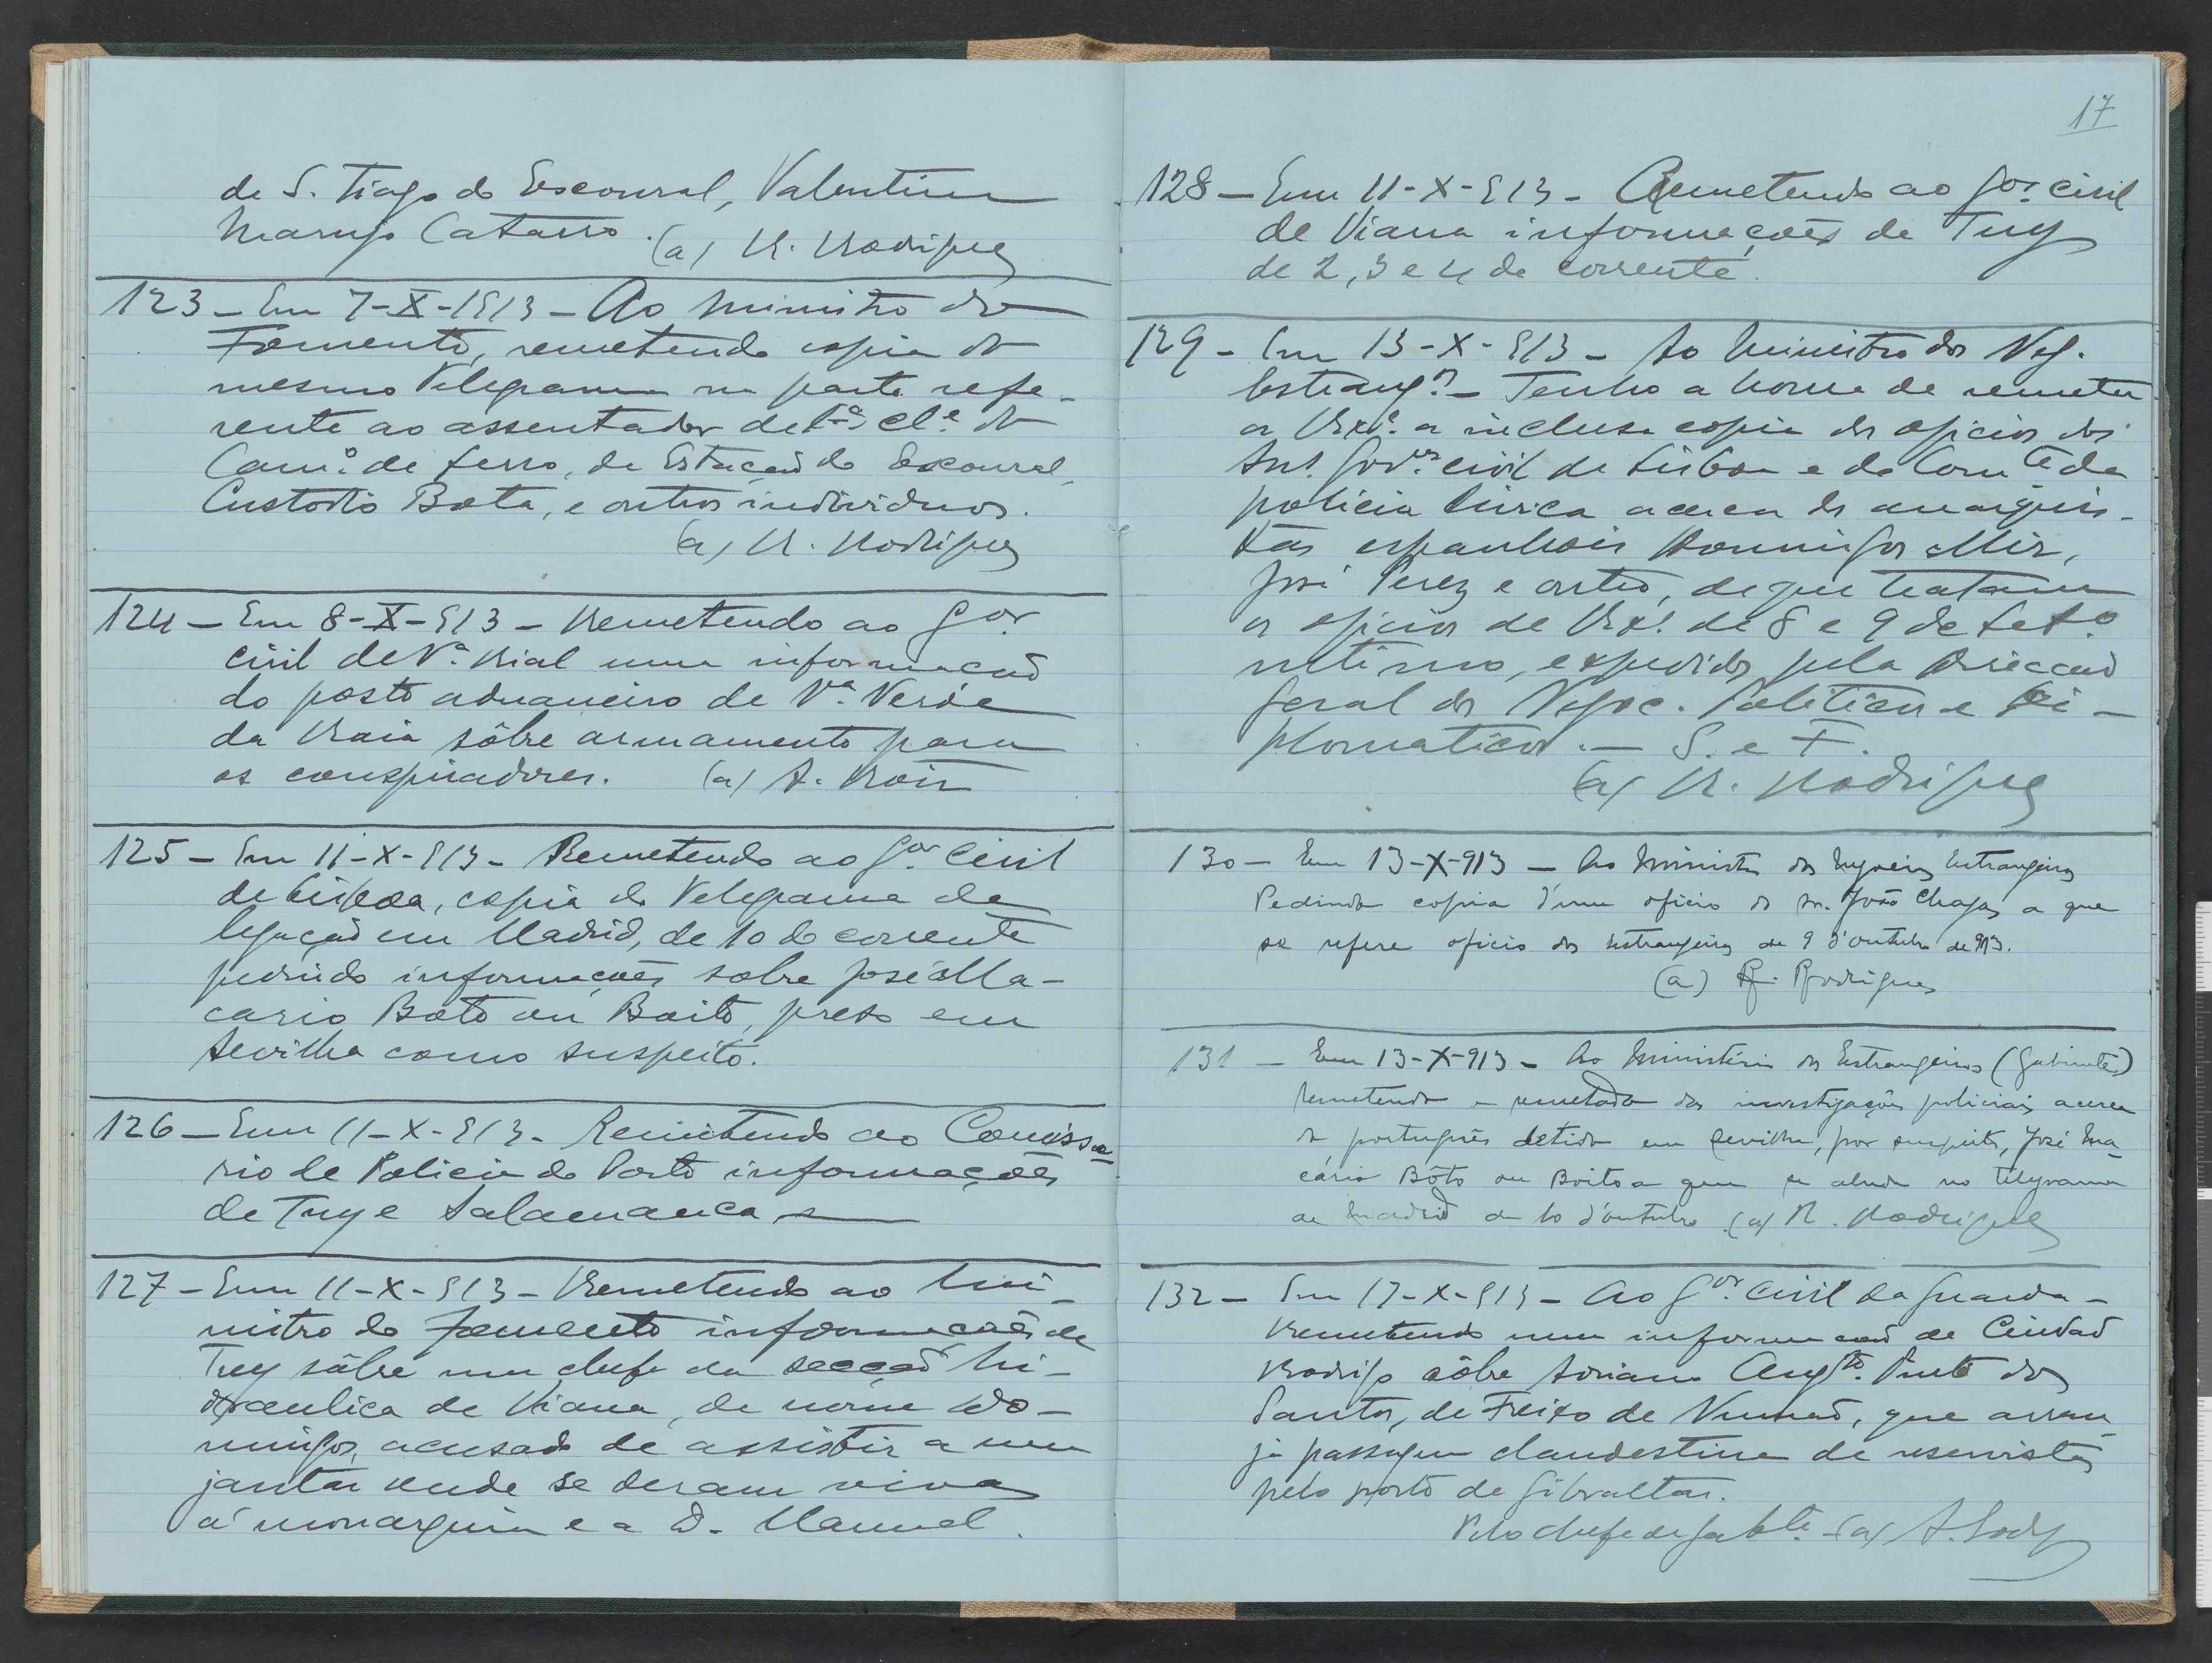 de S. Tiago do Escoural, Valentim
Marujo Catarro. (a) R. Rodrigues
123 - Em 7-X-1913 - Ao Ministro do
Fomento, remetendo copia do
mesmo telegrama na parte refe-
rente ao assentador de 1ª cl.e do
Camº de ferro, da Estação do Escoural,
Custodio Bata, e outros individuos.
(a) R. Rodrigues
124 - Em 8-X-913 - Remetendo ao Gor
civil de Vª Rial uma informação
do posto aduaneiro de Vª Verde
da Raia sôbre armamento para
os conspiradores. (a) A.
125 - Em 11-X-913 - Remetendo ao Gor civil
de Lisboa, copia do telegrama da
legação em Madrid, de 10 do corrente
pedindo informações sobre José Ma-
cario Boto ou Boito, preso em
Sevilha como suspeito.
126 - Em 11-X-913 - Remetendo ao Comissa-
rio de Policia do Porto informações
de Tuy e Salamanca
127 - Em 11-X-913 - Remetendo ao Mi-
nistro do Fomento informações de
Tuy sôbre um chefe da secção hi-
draulica de Viana, de nome Do-
mingos, acusado de assistir a um
jantar onde se deram vivas
á monarquia e a D. Manuel.
17
128 - Em 11-X-913 - Remetendo ao Gor civil
de Viana informações de Tuy
de 2, 3 e 4 do corrente.
129 - Em 13-X-913 - Ao Ministro dos Neg.
Estrangos - Tenho a honra de remeter
a V. Exª a inclusa copia dos oficios dos
Snrs Govres civil de Lisboa e do Comte da
policia civica acerca dos anarquis-
tas espanhois Domingos Mir,
José Perez e outro, de que tratam
os oficios de V. Exª de 8 e 9 de Setº
ultimo, expedidos pela Direcção
Geral dos Negoc. Politicos e Di-
plomaticos. - S. e F.
(a) R. Rodrigues
130 - Em 13-X-913 - Ao Ministro dos Negocios Estrangeiros
Pedindo copia d'um oficio do Sr. João Chagas a que
se refere oficio dos Estrangeiros de 9 d'outubro de 913.
(a) R. Rodrigues
131 - Em 13-X-913 - Ao Ministério dos Estrangeiros (Gabinete)
Remetendo o resultado das investigações policiais acerca
do português detido em Sevilha, por suspeito, José Ma-
cário Bôto ou Boito a quem se alude no telegrama
de Madrid de 10 d'outubro. (a) R. Rodrigues
132 - Em 17-X-913 - Ao Gor civil da Guarda -
Remetendo uma informação de Ciudad
Rodrigo sôbre Adriano Augto. Pinto dos
Santos, de Freixo de Numão, que arran-
ja passagem clandestina de reservistas
pelo porto de Gibraltar.
Pelo chefe de gabte (a) A.